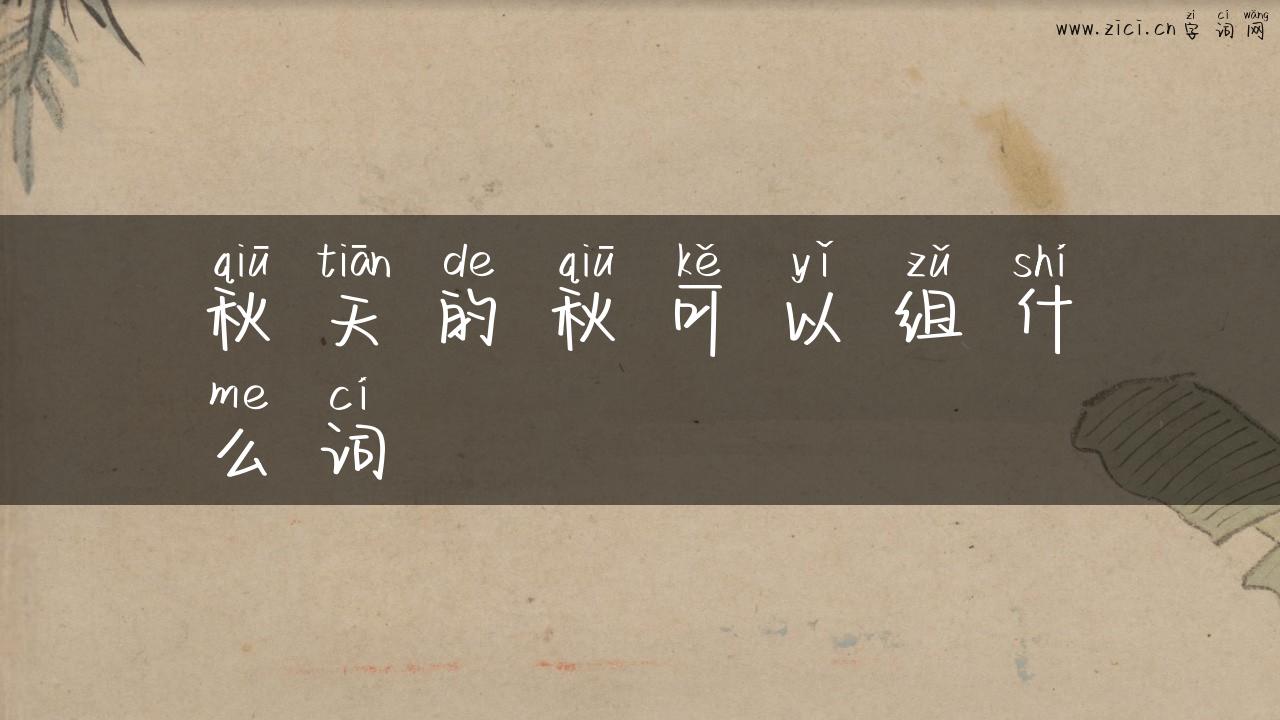 zì cí wǎng
www.zici.cn 字词网
qiū tiān de qiū kě yǐ zǔ shí
秋天的秋可以组什
me cí
么词